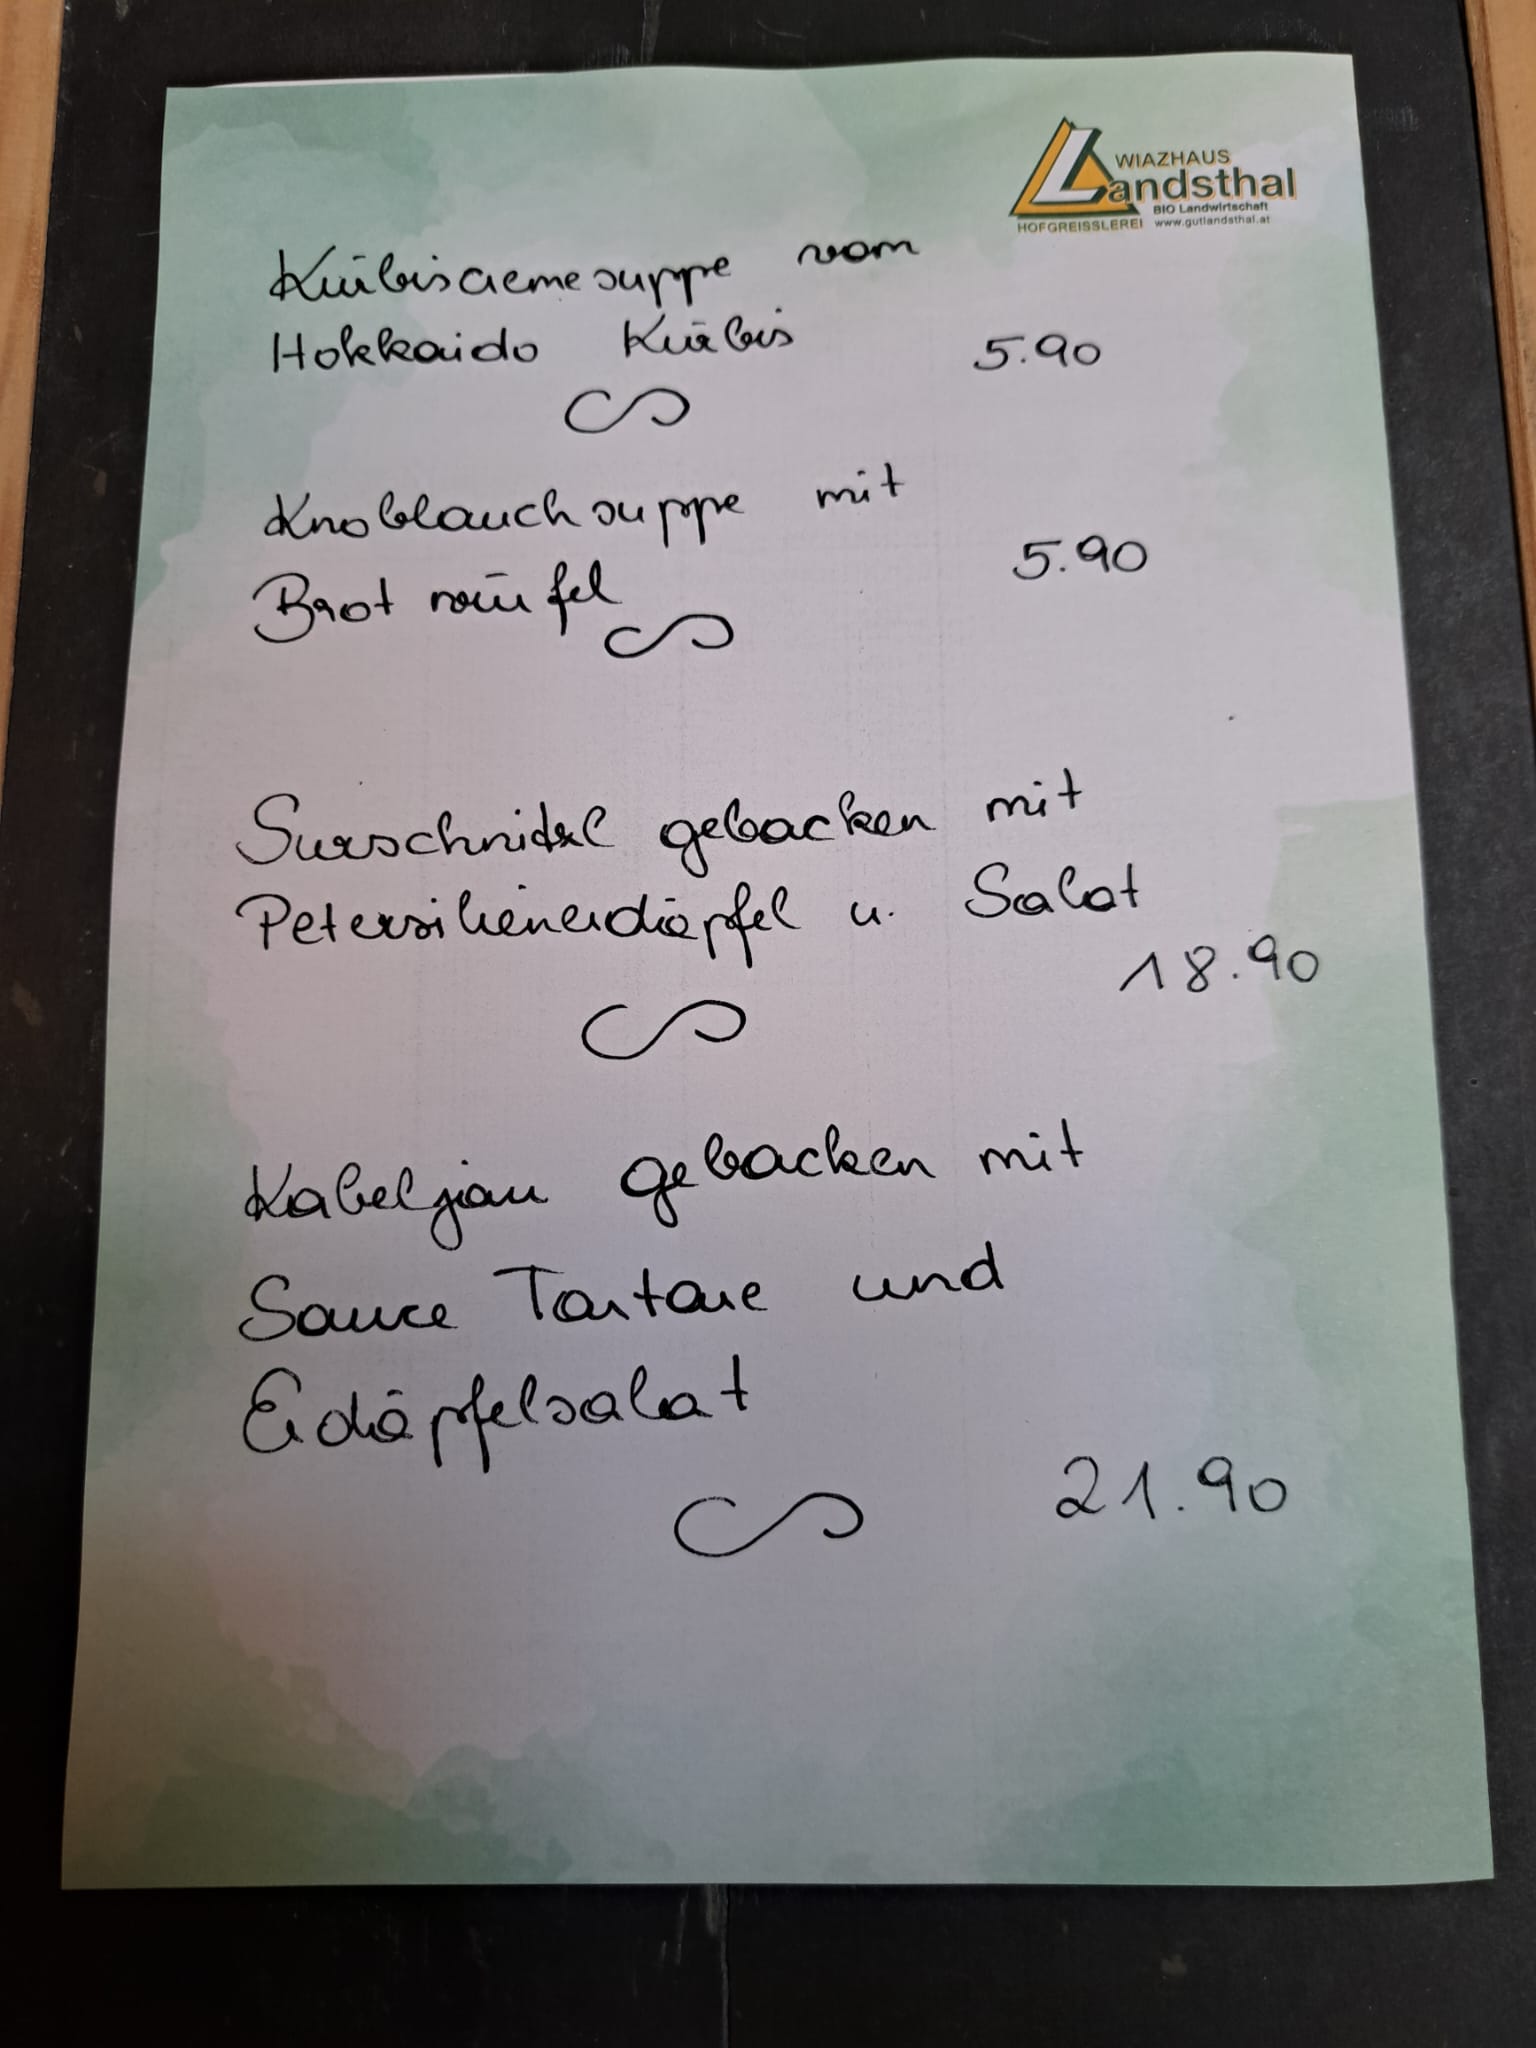 WIAZHAUS
Landsthal
BIO Landwirtschaft
HOFGREISSLEREI www.gutlandsthal.at
Kürbiscremesuppe vom
Hokkaido Kürbis 5.90
Knoblauchsuppe mit
Brotwürfel 5.90
Surschnitzel gebacken mit
Petersilienerdäpfel u. Salat
18.90
Kabeljau gebacken mit
Sauce Tartare und
Erdäpfelsalat
21.90